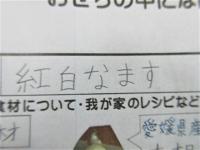 おせちの中には
紅白なます
食材について・我が家のレシピなど
材
愛媛県産